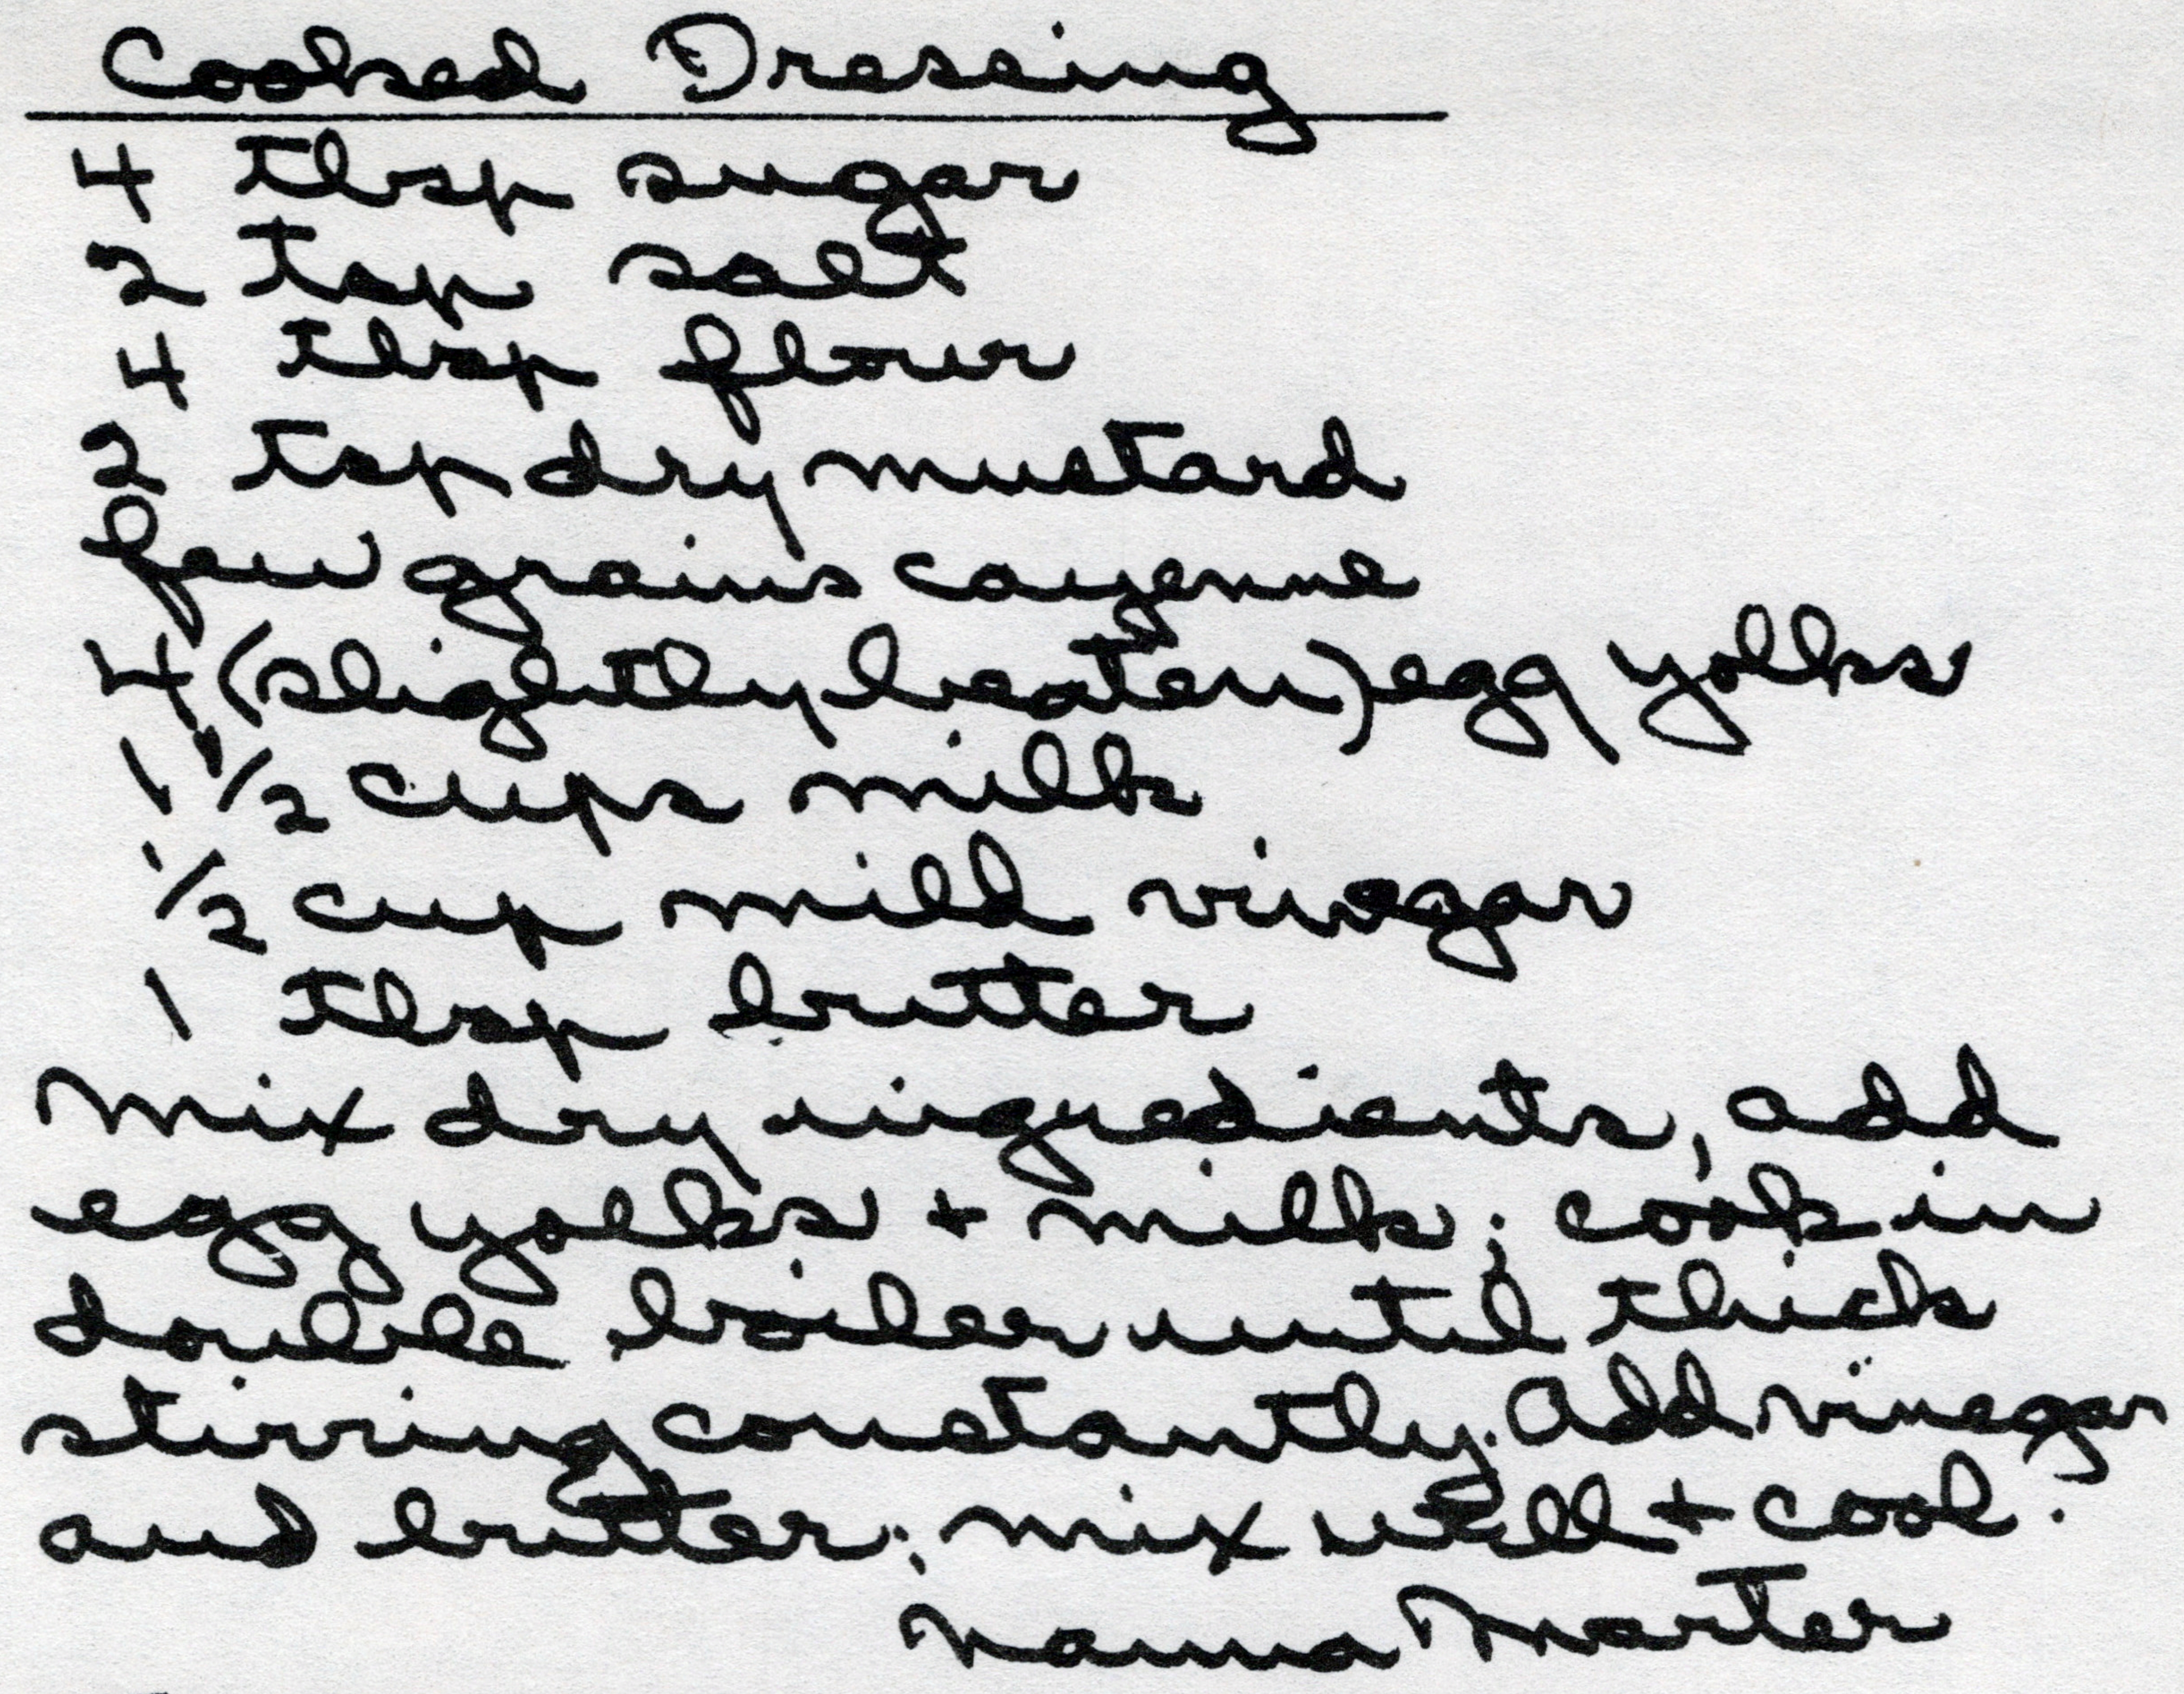 Cooked Dressing
4 tbsp sugar
2 tsp salt
4 tbsp flour
2 tsp dry mustard
few grains cayenne
4 (slightly beaten) egg yolks
1 1/2 cups milk
1/2 cup mild vinegar
1 tbsp butter
Mix dry ingredients, add
egg yolks + milk; cook in
double boiler until thick
stirring constantly. Add vinegar
and butter; mix well + cool.
Nanna Marter